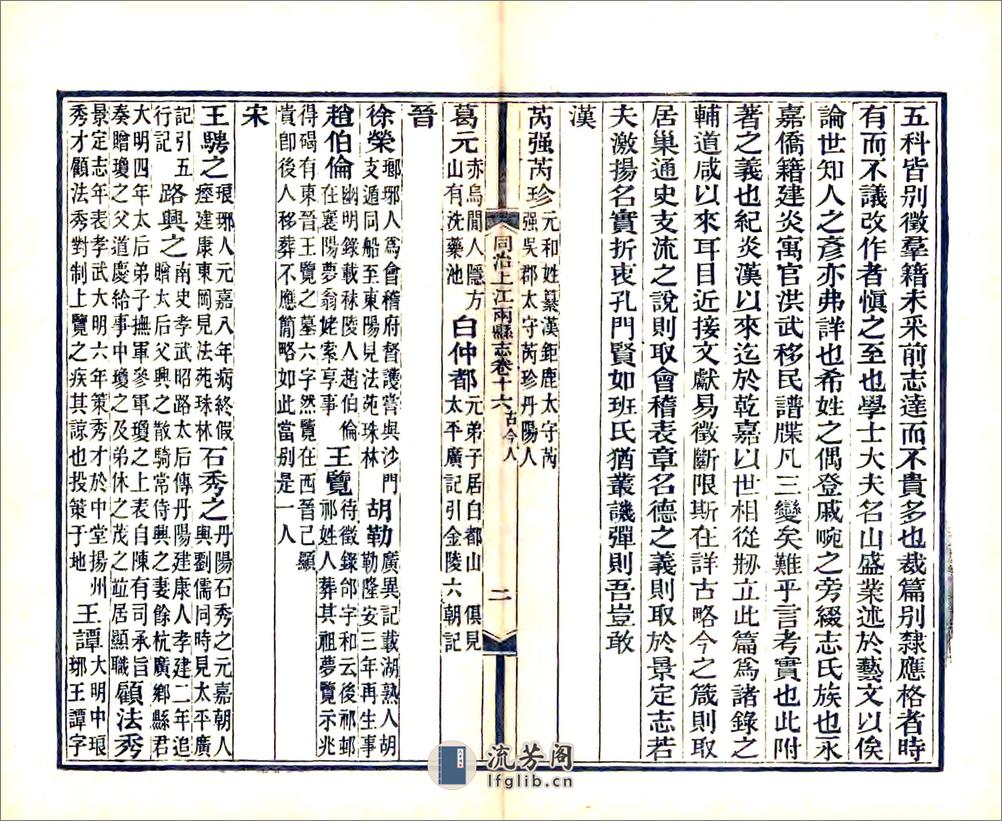 五科皆别徵羣籍未采前志達而不貴多也裁篇别隸應格者時
有而不議改作者愼之至也學士大夫名山盛業述於藝文以俟
論世知人之彥亦弗詳也希姓之偶登戚畹之旁綴志氏族也永
嘉僑籍建炎寓官洪武移民譜牒凡三變矣難乎言考實也此附
著之義也紀炎漢以來迄於乾嘉以世相從剏立此篇爲諸錄之
輔道咸以來耳目近接文獻易徵斷限斯在詳古略今之箴則取
居巢通史支流之說則取會稽表章名德之義則取於景定志若
夫激揚名實折衷孔門賢如班氏猶叢譏彈則吾豈敢
漢
芮强芮珍元和姓纂漢鉅鹿太守芮
强吳郡太守芮珍丹陽人
同治上江兩縣志卷十六 古今人 二
葛元赤烏間人隱方
山有洗藥池
白仲都元弟子居白都山 俱見
太平廣記引金陵六朝記
晉
徐榮瑯琊人爲會稽府督護嘗與沙門
支遁同船至東陽見法苑珠林
胡勒廣異記載湖熟人胡
勒隆安三年再生事
趙伯倫幽明錄載秣陵人趙伯倫
在襄陽夢翁姥索享事
王覽待徵錄郃字和云後祁邨
祁姓人葬其祖夢覽示兆
得碣有東晉王覽之墓六字然覽在西晉已顯
貴卽後人移葬不應簡略如此當别是一人
宋
王騁之琅琊人元嘉八年病終假
瘞建康東岡見法苑珠林
石秀之丹陽石秀之元嘉朝人
與劉儒同時見太平廣
記引五
行記
路興之南史孝武昭路太后傳丹陽建康人孝建二年追
贈太后父興之散騎常侍興之妻餘杭廣鄉縣君
大明四年太后弟子撫軍參軍瓊之上表自陳有司承旨
奏贈瓊之父道慶給事中瓊之及弟休之茂之竝居顯職
顧法秀
景定志年表孝武大明六年策秀才於中堂揚州
秀才顧法秀對制上覽之疾其諒也投策于地
王譚大明中琅
琊王譚字
流芳阁
lfglib.cn